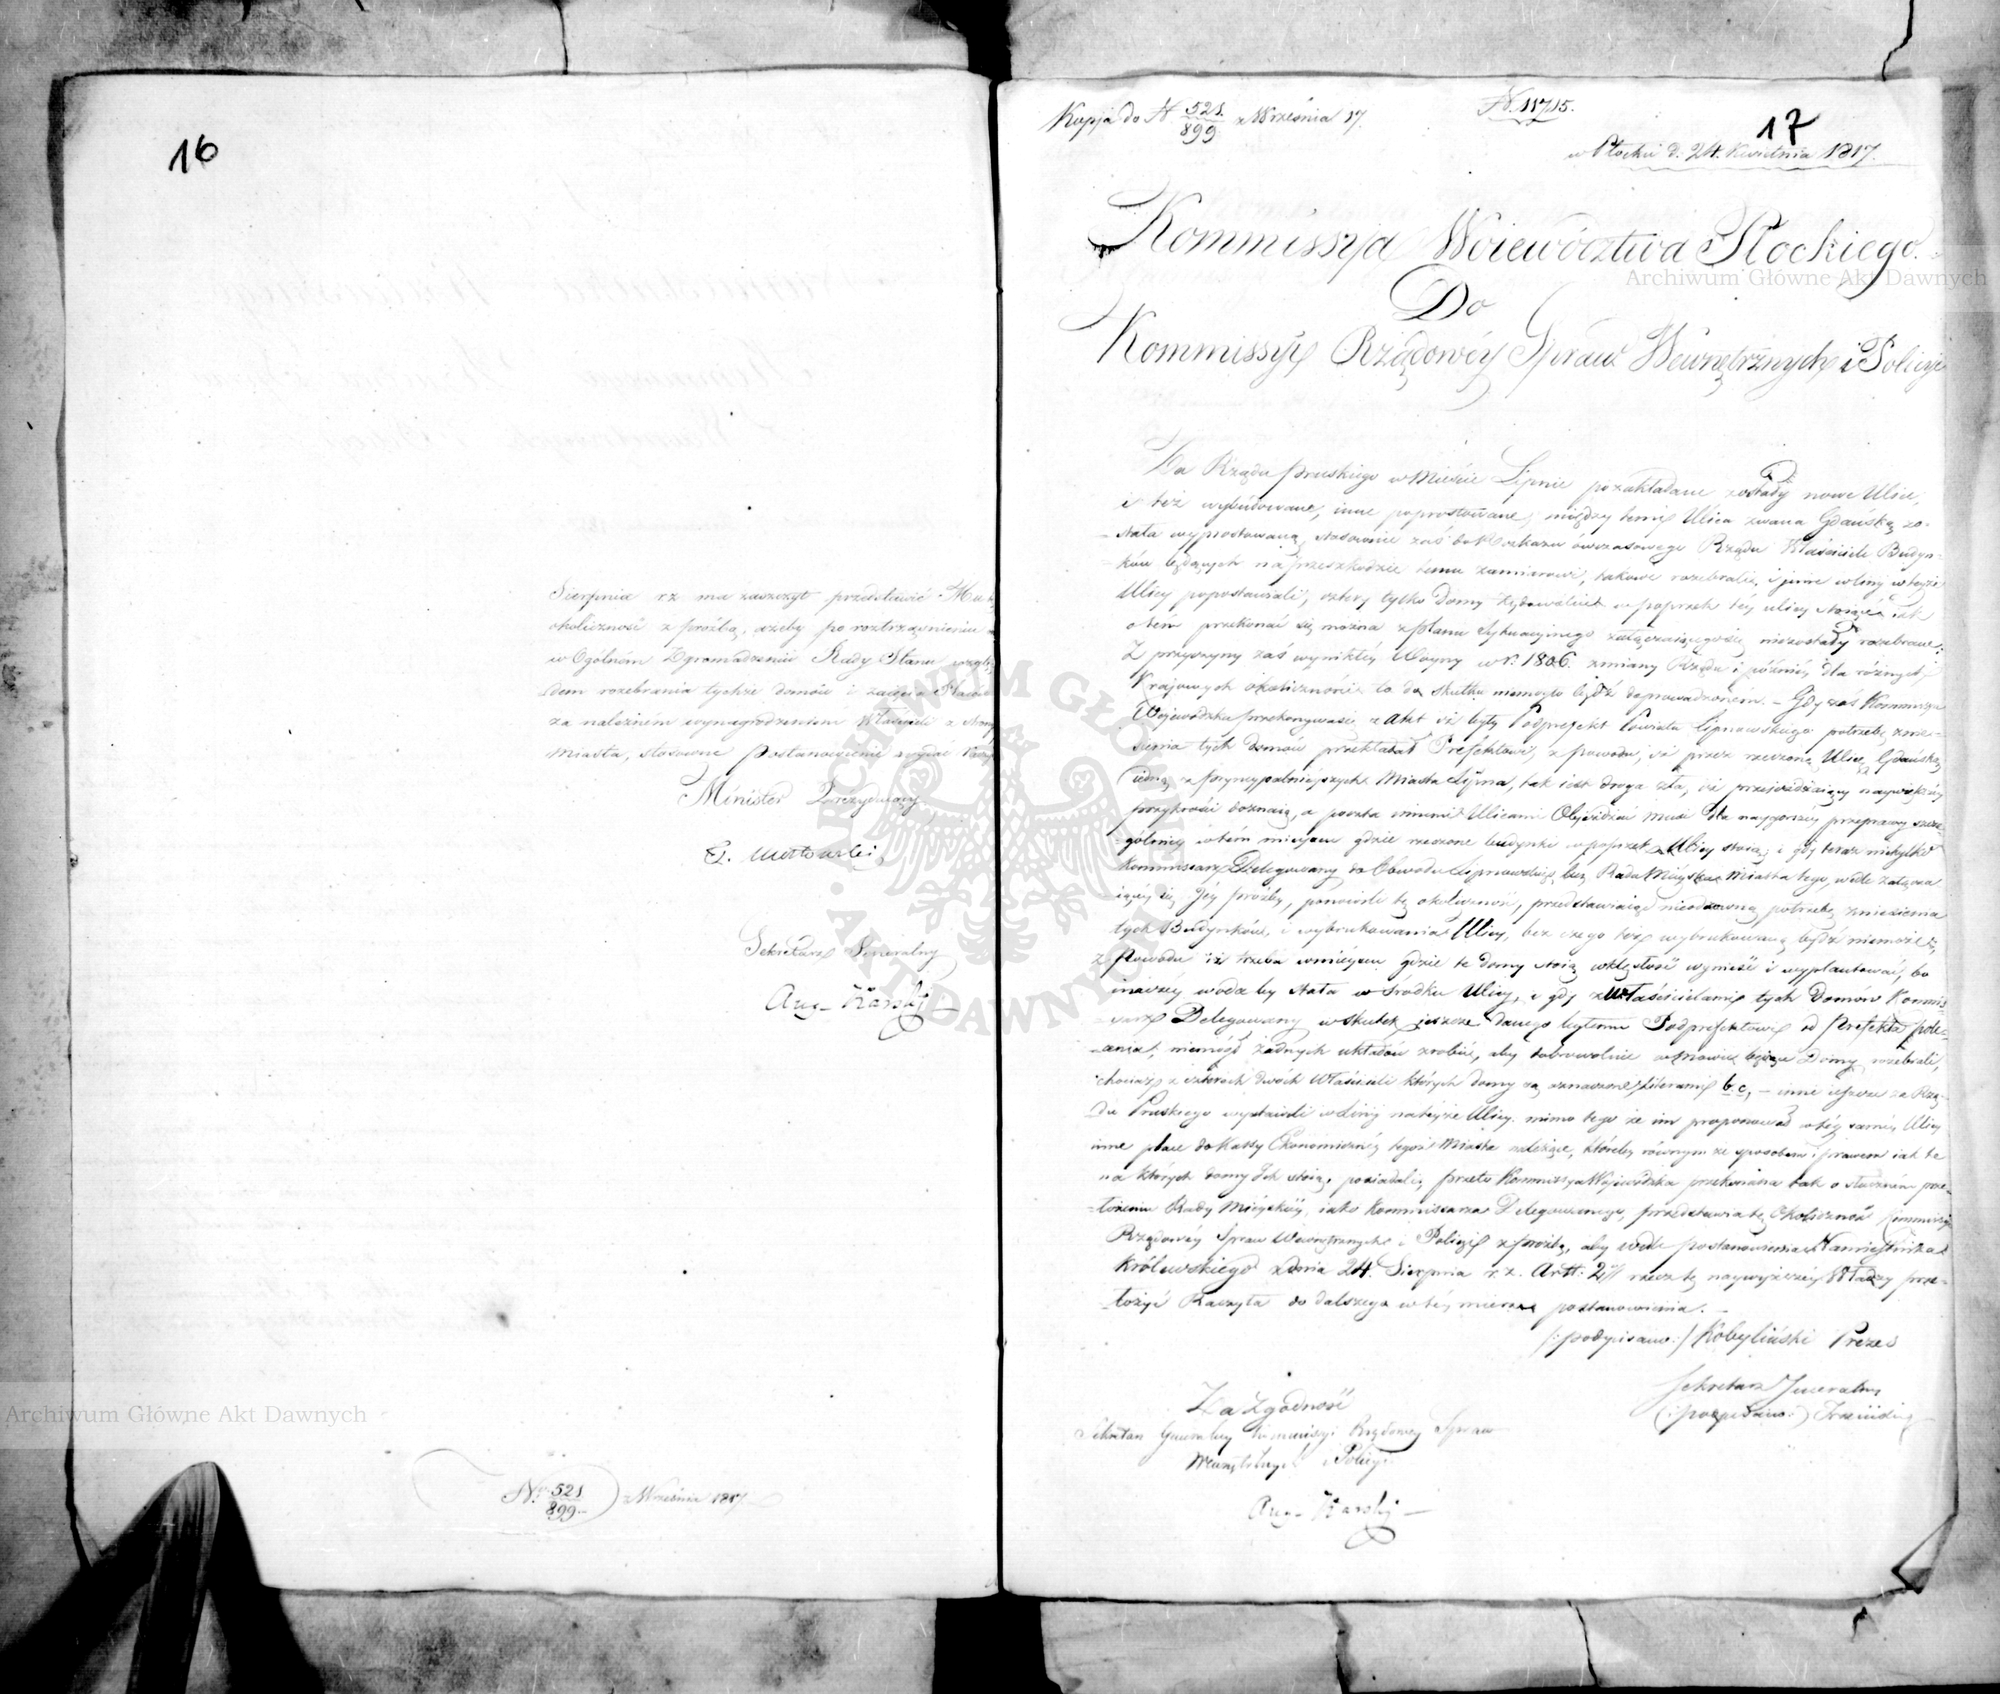 16
Sierpnia r. z. ma zaszczyt przedstawić
okoliczność z prośbą, ażeby po roztrząśnieniu
w Ogólném Zgromadzeniu Rady Stanu wzglę
dem rozebrania tychże domów i zajęcia
za należném wynagrodzeniem Właścicieli z strony
Miasta, stosowne Postanowienie wydać
Minister Prezydujący
Sekretarz Generalny
Aug. Karski
No. 521/899 z Września 1817
Kopja do N 521/899 z Września 17.
N. 11715.
17
w Płocku d. 24. Kwietnia 1817.
Kommissya Woiewództwa Płockiego.
Do
Kommissyi Rządowéy Spraw Wewnętrznych i Policyi
Za Rządu Pruskiego w Mieście Lipnie pozakładane zostały nowe Ulice,
i też wybudowane, inne poprostowane, między temi Ulica zwana Gdańską zo-
stała wyprostowaną, stosownie zaś do Rozkazu ówczasowego Rządu Właściciele Budyn-
ków będących na przeszkodzie temu zamiarowi, takowe rozebrali, i inne w liniy w teyże
Ulicy popostawiali, cztery tylko Domy w poprzek téy ulicy stoiące iak
o tém przekonać się można z planu Sytuacyinego załączaiącego się niezostały rozebrane.
Z przyczyny zaś wynikłéy Woyny w r. 1806. zmiany Rządu i późniéy dla różnych
Kraiowych okoliczności to do skutku niemogło bydź doprowadzoném. – Gdy zaś Kommissya
Wojewódzka przekonywa się z Akt iż były Podprefekt Powiatu Lipnowskiego potrzebę znie-
sienia tych domów przekładał Prefektowi, z powodu, iż przez rzeczoną Ulicę Gdańską
iedną z pryncypalnieyszych Miasta Lipna, tak iest droga zła, iż przejeżdżaiący naywiększéy
przykrości doznaią, a poczta innemi Ulicami Objeżdżać musi dla naygorszéy przeprawy szcze-
gólniéy w tém mieyscu gdzie rzeczone budynki w poprzek Ulicy stoią; i gdy teraz nietylko
Kommissarz Delegowany do Obwodu Lipnowskiego, lecz Rada Mieyska Miasta tego, wedle załącza
iącéy się Jéy prośby, ponowiła tę okoliczność, przedstawiaiąc nieodzowną potrzebę zniesienia
tych Budynków, i wybrukowania Ulicy, bez czego też wybrukowaną bydź niemoże,
z Powodu iż trzeba w mieyscu gdzie te domy stoią wklęsłość wynieść i wyplantować, bo
inaczéy woda by stała w środku Ulicy, i gdy z Właścicielami tych Domów Kommis-
sarz Delegowany w skutek ieszcze danego byłemu Podprefektowi od Prefekta pole-
cenia, niemógł żadnych układów zrobić, aby dobrowolnie w mowie będące Domy rozebrali,
chociaż z czterech dwóch Właścicieli których domy są oznaczone literami b. c, – inne ieszcze za Rzą-
du Pruskiego wystawili w linij na teyże Ulicy. mimo tego że im proponował w téy saméy Ulicy
inne place do Kassy Ekonomicznéy tegoż Miasta należące, któreby równym że sposobem i prawem iak te
na których domy Ich stoią, posiadali, przeto Kommissya Wojewódzka przekonana tak o słuszném prze-
łożeniu Rady Mieyskiéy, iako Kommissarza Delegowanego, przedstawia tę okoliczność Kommissyi
Rządowéy Spraw Wewnętrznych i Policyi z prośbą, aby wedle postanowienia Namiestnika
Królewskiego z dnia 24. Sierpnia r. z. Artt: 2go rzecz tę naywyższéy Władzy prze-
łożyć Raczyła do dalszego w téy mierze postanowienia. –
/: podpisano :/ Kobyliński Prezes
Sekretarz Jeneralny
(: podpisano :)
Za Zgodność
Sekretarz Generalny Kommissyi Rządowey Spraw
Wewnętrznych i Policyi
Aug. Karski
Archiwum Główne Akt Dawnych
Archiwum Główne Akt Dawnych
ARCHIWUM GŁÓWNE AKT DAWNYCH